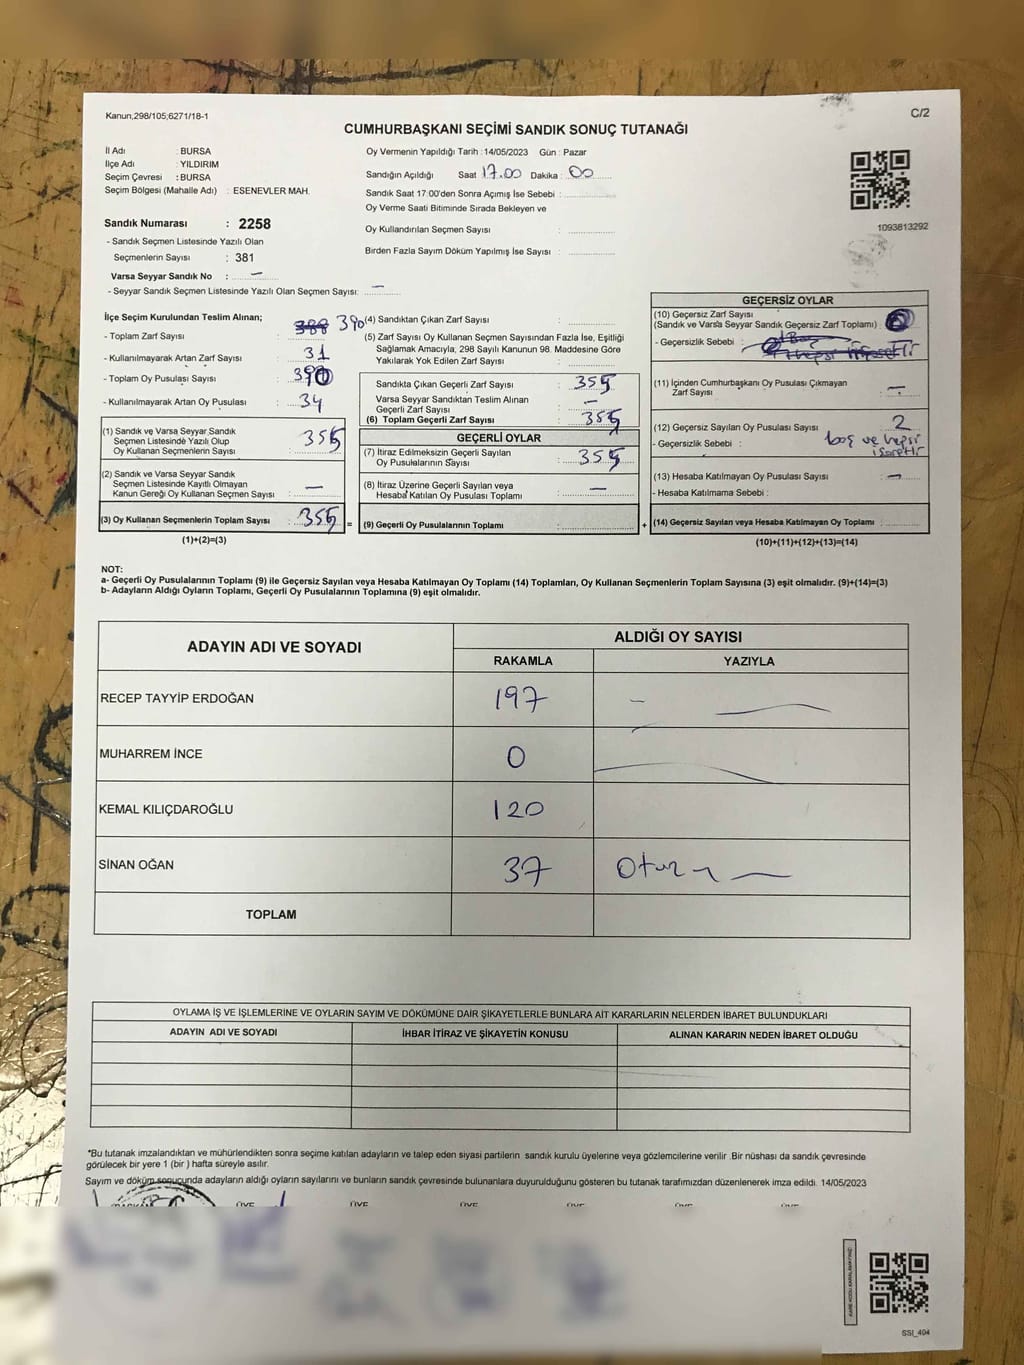 Kanun,298/105;6271/18-1
C/2
CUMHURBAŞKANI SEÇİMİ SANDIK SONUÇ TUTANAĞI
İl Adı : BURSA
İlçe Adı : YILDIRIM
Seçim Çevresi : BURSA
Seçim Bölgesi (Mahalle Adı) : ESENEVLER MAH.
Sandık Numarası : 2258
- Sandık Seçmen Listesinde Yazılı Olan
Seçmenlerin Sayısı : 381
Varsa Seyyar Sandık No : —
- Seyyar Sandık Seçmen Listesinde Yazılı Olan Seçmen Sayısı: —
Oy Vermenin Yapıldığı Tarih : 14/05/2023 Gün : Pazar
Sandığın Açıldığı Saat 17.00 Dakika : 00
Sandık Saat 17:00'den Sonra Açımış İse Sebebi :
Oy Verme Saati Bitiminde Sırada Bekleyen ve
Oy Kullandırılan Seçmen Sayısı :
Birden Fazla Sayım Döküm Yapılmış İse Sayısı :
1093813292
İlçe Seçim Kurulundan Teslim Alınan;
- Toplam Zarf Sayısı : 388 390
- Kullanılmayarak Artan Zarf Sayısı : 31
- Toplam Oy Pusulası Sayısı : 390
- Kullanılmayarak Artan Oy Pusulası : 34
(1) Sandık ve Varsa Seyyar Sandık
Seçmen Listesinde Yazılı Olup
Oy Kullanan Seçmenlerin Sayısı : 355
(2) Sandık ve Varsa Seyyar Sandık
Seçmen Listesinde Kayıtlı Olmayan
Kanun Gereği Oy Kullanan Seçmen Sayısı : —
(3) Oy Kullanan Seçmenlerin Toplam Sayısı : 355 =
(1)+(2)=(3)
(4) Sandıktan Çıkan Zarf Sayısı :
(5) Zarf Sayısı Oy Kullanan Seçmen Sayısından Fazla İse, Eşitliği
Sağlamak Amacıyla; 298 Sayılı Kanunun 98. Maddesine Göre
Yakılarak Yok Edilen Zarf Sayısı :
Sandıkta Çıkan Geçerli Zarf Sayısı : 355
Varsa Seyyar Sandıktan Teslim Alınan
Geçerli Zarf Sayısı : —
(6) Toplam Geçerli Zarf Sayısı : 355
GEÇERLİ OYLAR
(7) İtiraz Edilmeksizin Geçerli Sayılan
Oy Pusulalarının Sayısı : 355
(8) İtiraz Üzerine Geçerli Sayılan veya
Hesaba Katılan Oy Pusulası Toplamı : —
(9) Geçerli Oy Pusulalarının Toplamı : +
GEÇERSİZ OYLAR
(10) Geçersiz Zarf Sayısı
(Sandık ve Varsa Seyyar Sandık Geçersiz Zarf Toplamı) :
- Geçersizlik Sebebi :
(11) İçinden Cumhurbaşkanı Oy Pusulası Çıkmayan
Zarf Sayısı : —
(12) Geçersiz Sayılan Oy Pusulası Sayısı : 2
- Geçersizlik Sebebi : boş ve hepsi
(13) Hesaba Katılmayan Oy Pusulası Sayısı : —
- Hesaba Katılmama Sebebi :
(14) Geçersiz Sayılan veya Hesaba Katılmayan Oy Toplamı :
(10)+(11)+(12)+(13)=(14)
NOT:
a- Geçerli Oy Pusulalarının Toplamı (9) ile Geçersiz Sayılan veya Hesaba Katılmayan Oy Toplamı (14) Toplamları, Oy Kullanan Seçmenlerin Toplam Sayısına (3) eşit olmalıdır. (9)+(14)=(3)
b- Adayların Aldığı Oyların Toplamı, Geçerli Oy Pusulalarının Toplamına (9) eşit olmalıdır.
ADAYIN ADI VE SOYADI
ALDIĞI OY SAYISI
RAKAMLA YAZIYLA
RECEP TAYYİP ERDOĞAN 197
MUHARREM İNCE 0
KEMAL KILIÇDAROĞLU 120
SİNAN OĞAN 37
TOPLAM
OYLAMA İŞ VE İŞLEMLERİNE VE OYLARIN SAYIM VE DÖKÜMÜNE DAİR ŞİKAYETLERLE BUNLARA AİT KARARLARIN NELERDEN İBARET BULUNDUKLARI
ADAYIN ADI VE SOYADI İHBAR İTİRAZ VE ŞİKAYETİN KONUSU ALINAN KARARIN NEDEN İBARET OLDUĞU
*Bu tutanak imzalandıktan ve mühürlendikten sonra seçime katılan adayların ve talep eden siyasi partilerin sandık kurulu üyelerine veya gözlemcilerine verilir .Bir nüshası da sandık çevresinde
görülecek bir yere 1 (bir ) hafta süreyle asılır.
Sayım ve döküm sonucunda adayların aldığı oyların sayılarını ve bunların sandık çevresinde bulunanlara duyurulduğunu gösteren bu tutanak tarafımızdan düzenlenerek imza edildi. 14/05/2023
ÜYE ÜYE ÜYE ÜYE ÜYE ÜYE
SSI_404